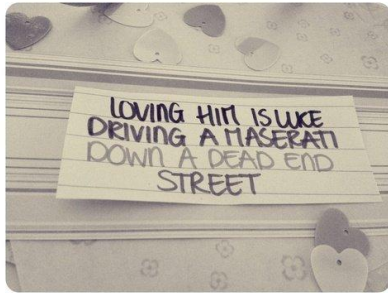 LOVING HIM IS LIKE
DRIVING A MASERATI
DOWN A DEAD END
STREET